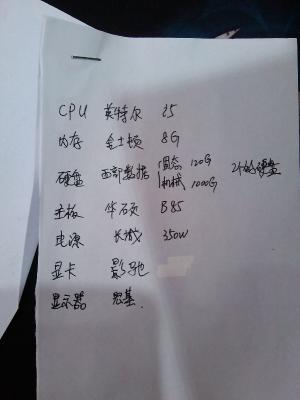 CPU 英特尔 i5
内存 金士顿 8G
硬盘 西部数据 固态 120G 机械 1000G 2个的硬盘
主板 华硕 B85
电源 长城 350W
显卡 影驰
显示器 思基